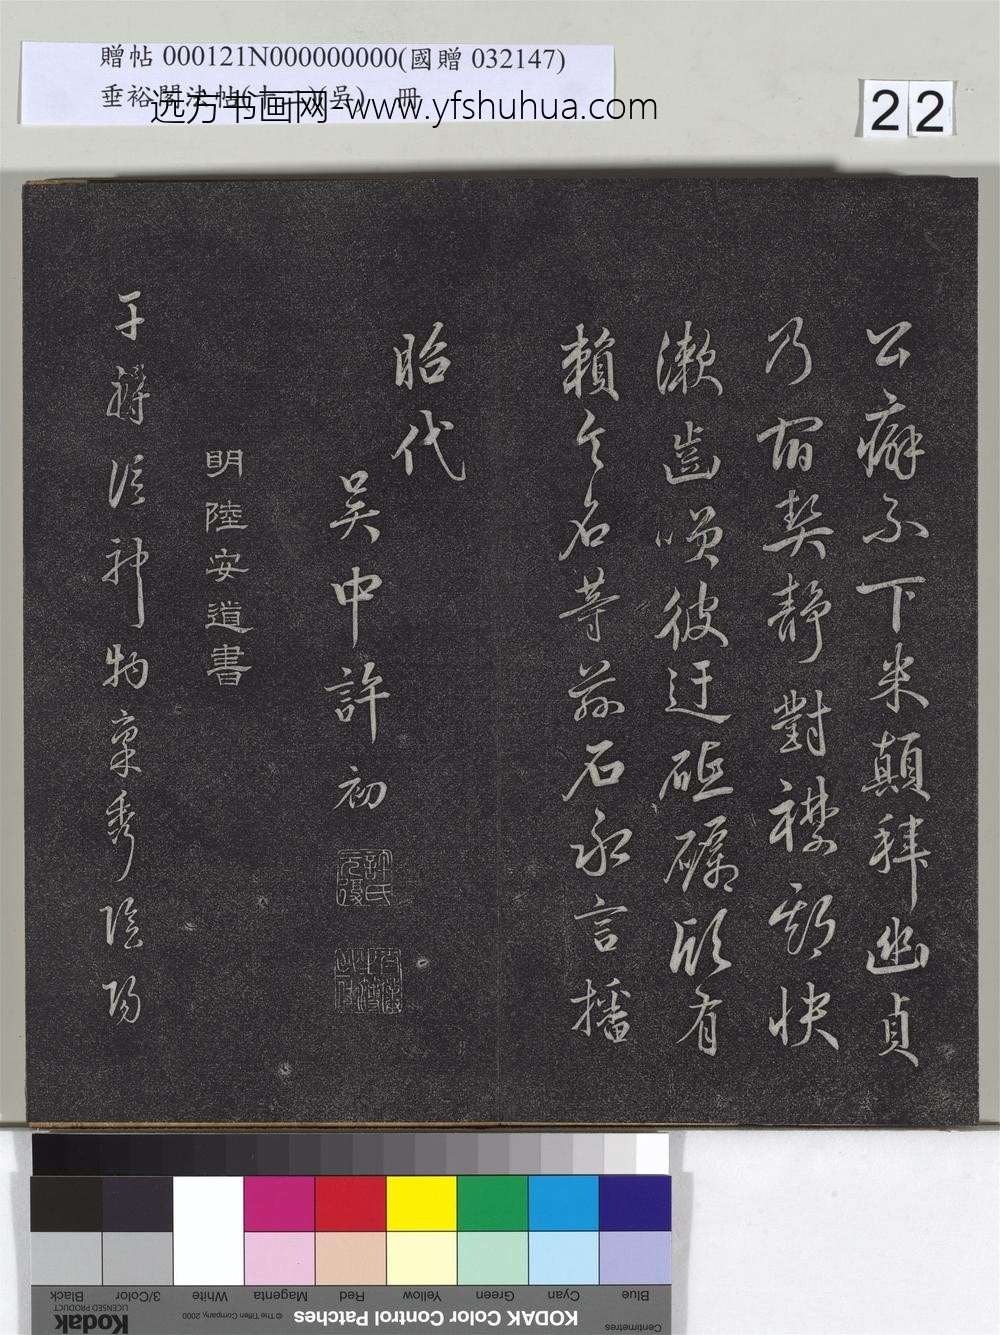 贈帖 000121N000000000(國贈 032147)
垂裕閣法帖(十一)(吳) 冊
远方书画网-www.yfshuhua.com
22
公癖不下米顛拜幽貞
乃有契靜對襟期快
漱齒嗅彼迂砥礪頑有
賴令名等茲石永言播
昭代
吳中許初
許氏元復
明陸安道書
予得詣神物稟秀陰陽
Blue Cyan Green Yellow Red Magenta White 3/Color Black
Centimetres KODAK Color Control Patches © The Tiffen Company, 2000 Kodak LICENSED PRODUCT